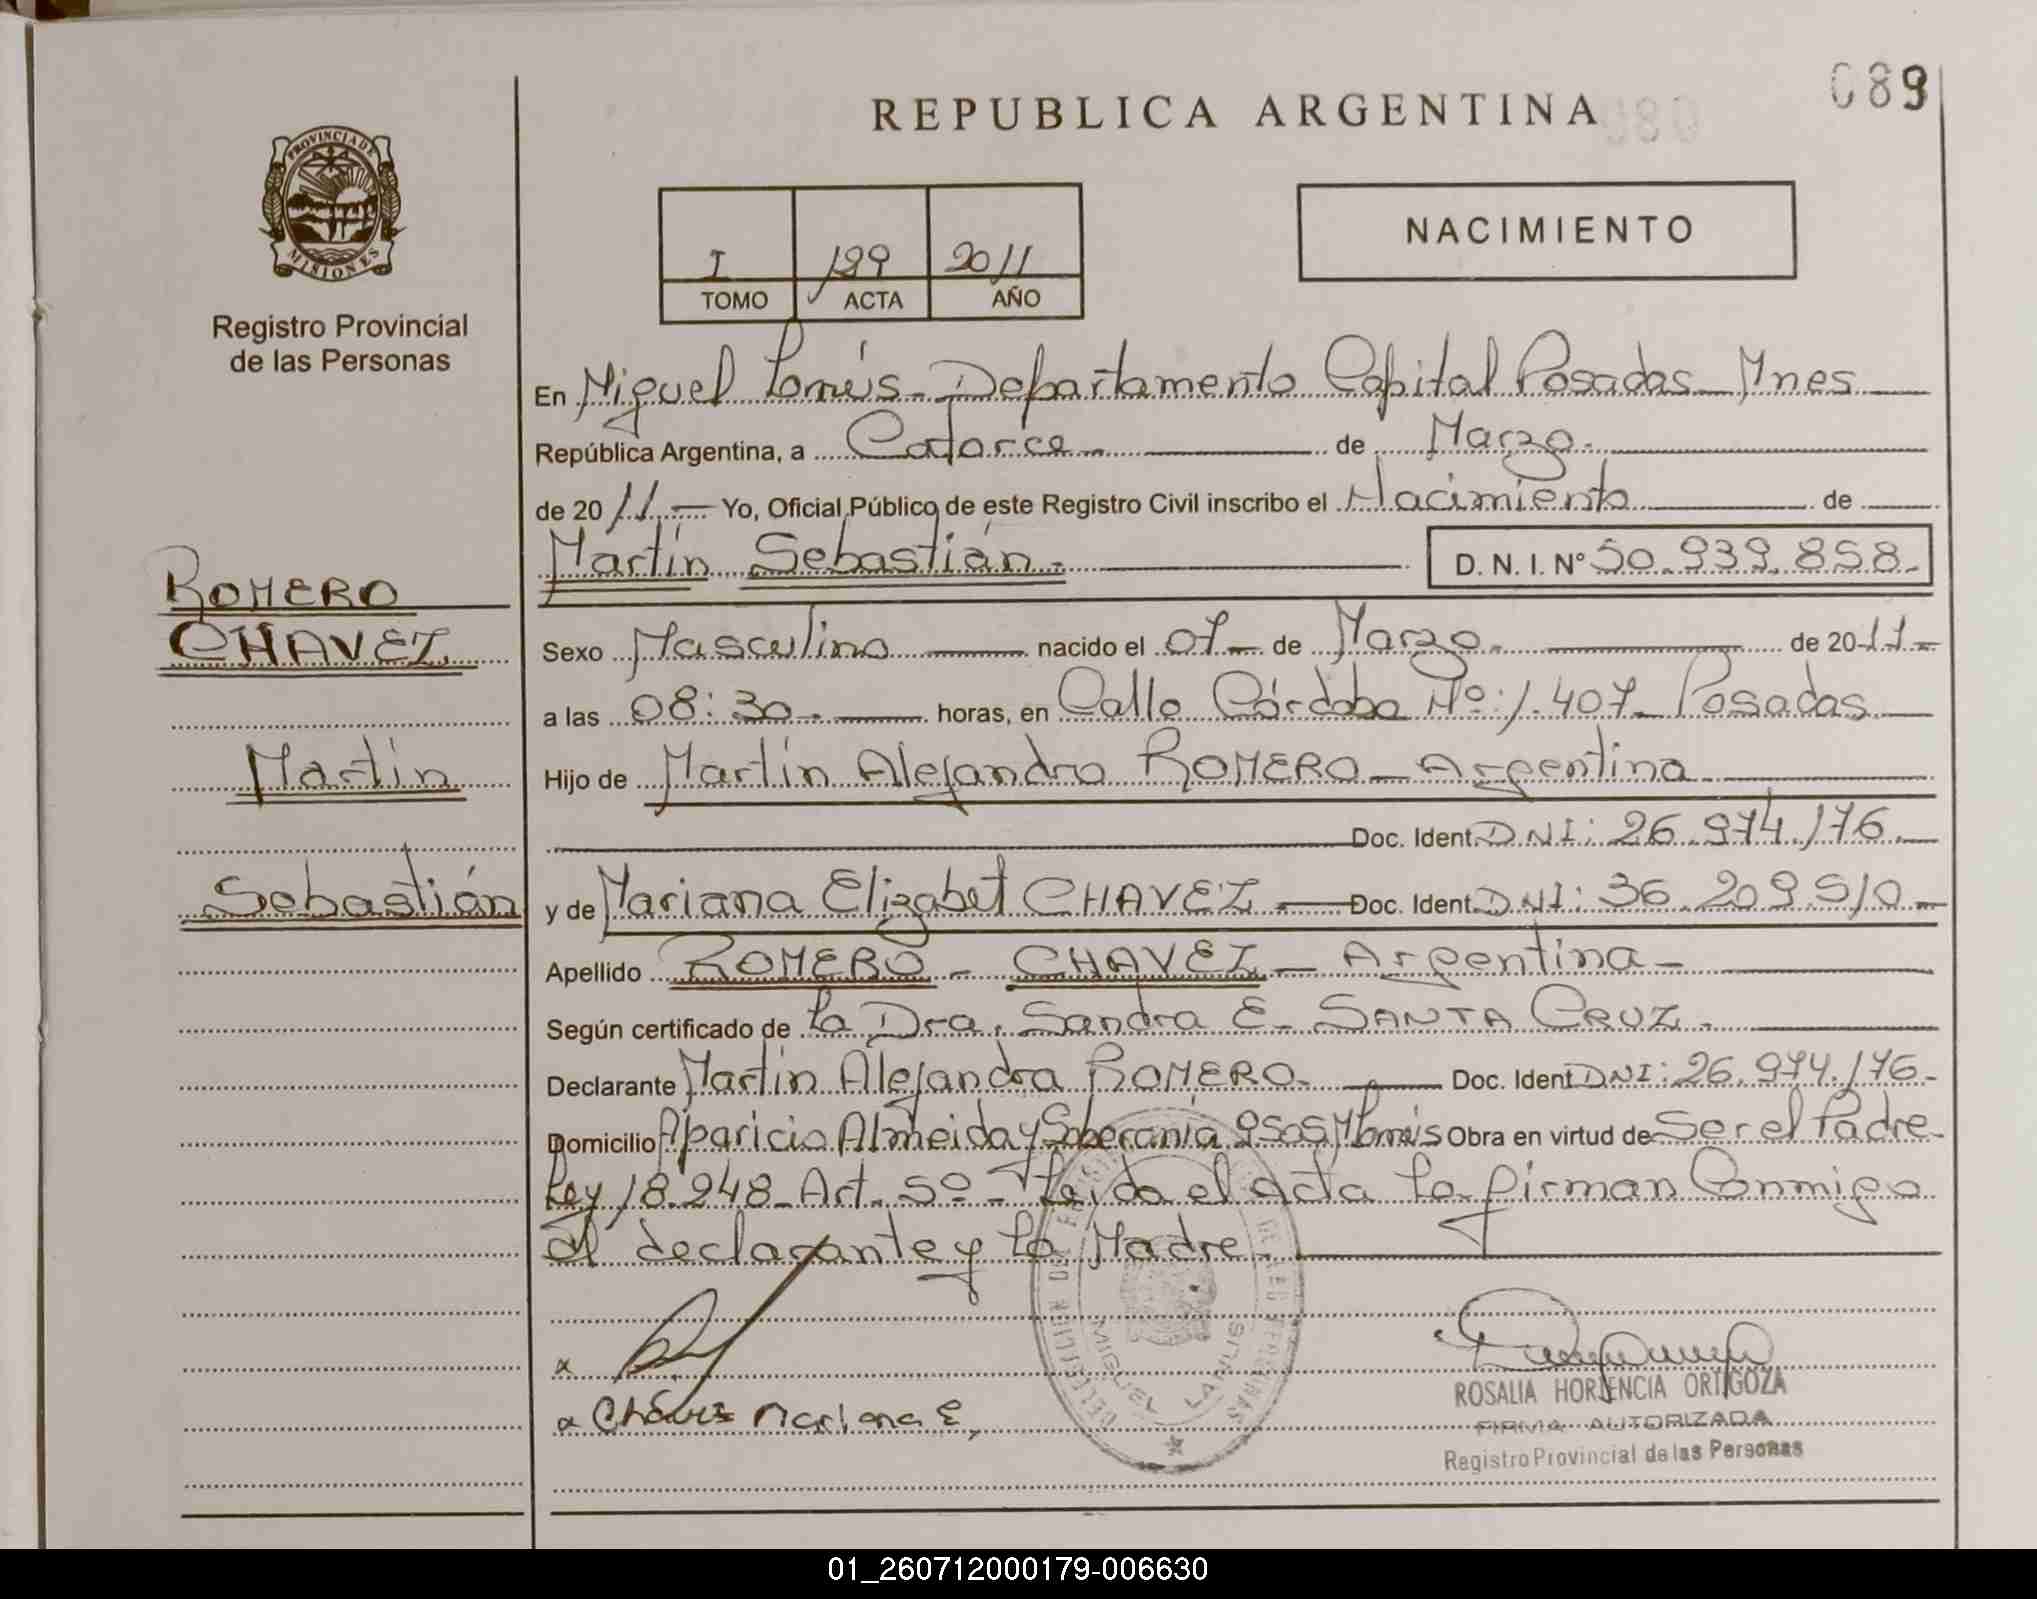 089
REPUBLICA ARGENTINA
080
PROVINCIA DE
MISIONES
Registro Provincial
de las Personas
I 199 2011
TOMO ACTA AÑO
NACIMIENTO
En Miguel Lanús - Departamento Capital Posadas - Mnes
República Argentina, a Catorce - de Marzo -
de 2011 - Yo, Oficial Público de este Registro Civil inscribo el Nacimiento de
Martín Sebastián - D. N. I. Nº 50.939.858-
ROMERO
CHAVEZ
Martín
Sebastián
Sexo Masculino nacido el 07 - de Marzo - de 2011 -
a las 08:30 - horas, en Calle Córdoba Nº: 1.407 - Posadas
Hijo de Martín Alejandro ROMERO - Argentina
Doc. Ident. DNI: 26.974.176 -
y de Mariana Elizabet CHAVEZ - Doc. Ident. DNI: 36.209.510 -
Apellido ROMERO - CHAVEZ - Argentina -
Según certificado de La Dra. Sandra E. SANTA CRUZ -
Declarante Martín Alejandro ROMERO - Doc. Ident DNI: 26.974.176 -
Domicilio Aparicio Almeida y Soberanía M Lanús Obra en virtud de Ser el Padre -
Ley 18.248 - Art. 5º - Leída el acta La firman Conmigo
el declarante y La Madre -
x
x Chávez Mariana E,
MIGUEL LANUS
ROSALIA HORTENCIA ORTIGOZA
FIRMA AUTORIZADA
Registro Provincial de las Personas
01_260712000179-006630